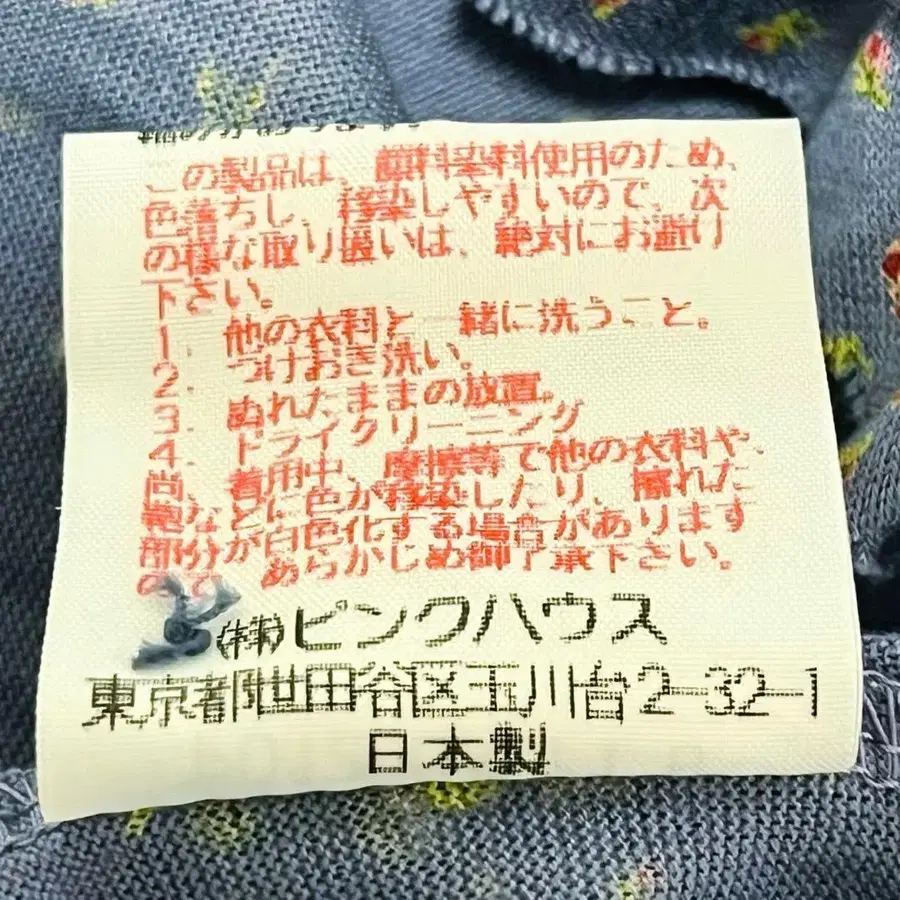 この製品は、顔料染料使用のため、
色落ちし、移染しやすいので、次
の様な取り扱いは、絶対にお避け
下さい。
1. 他の衣料と一緒に洗うこと。
2. つけおき洗い。
3. ぬれたままの放置。
4. ドライクリーニング
尚、着用中、摩擦等で他の衣料や、
鞄などに色が移染したり、擦れた
部分が白色化する場合があります
ので、あらかじめ御了承下さい。
(株)ピンクハウス
東京都世田谷区玉川台2-32-1
日本製